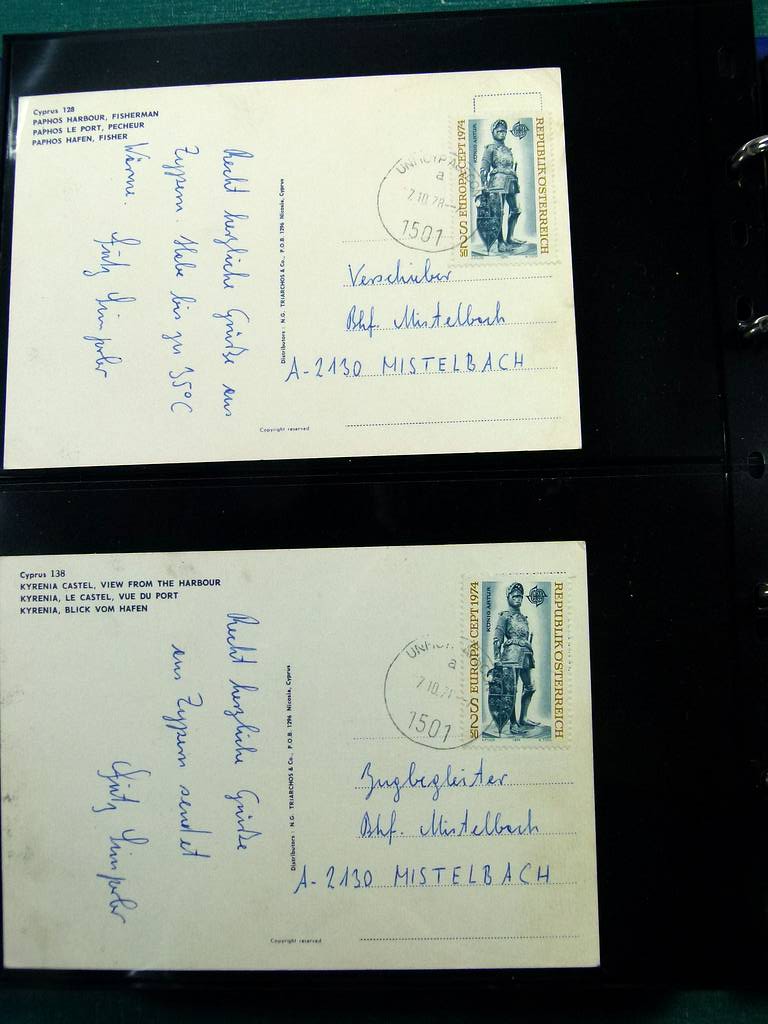 Cyprus 128
PAPHOS HARBOUR, FISHERMAN
PAPHOS LE PORT, PECHEUR
PAPHOS HAFEN, FISHER
Recht herzliche Grüße aus
Zypern. Habe bis zu 35°C
Wärme. Fritz
Distributors : N.G. TRIARCHOS & Co., P.O.B. 1296 Nicosia, Cyprus
Copyright reserved
a
7.10.78
1501
S 2 50 EUROPA CEPT 1974
KÖNIG ARTUR
REPUBLIK ÖSTERREICH
Verschieber
Bhf. Mistelbach
A-2130 MISTELBACH
Cyprus 138
KYRENIA CASTEL, VIEW FROM THE HARBOUR
KYRENIA, LE CASTEL, VUE DU PORT
KYRENIA, BLICK VOM HAFEN
Recht herzliche Grüße
aus Zypern sendet
Fritz
Distributors : N.G. TRIARCHOS & Co., P.O.B. 1296 Nicosia, Cyprus
Copyright reserved
a
7.10.
1501
S 2 50 EUROPA CEPT 1974
KÖNIG ARTUR
REPUBLIK ÖSTERREICH
Zugbegleiter
Bhf. Mistelbach
A-2130 MISTELBACH